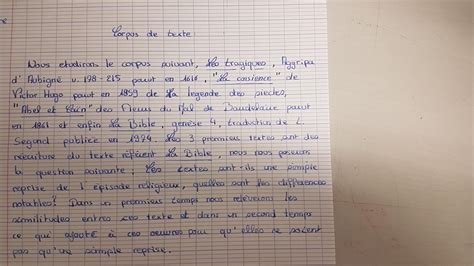 Corpus de texte:
Nous etudirons le corpus suivant, Les tragiques, Aggripa
d'Aubigné v. 178 - 215 parut en 1616, "La consience" de
Victor Hugo parut en 1859 de La legende des siecles,
"Abel et Caïn" des fleurs du Mal de Baudelaire parut
en 1861 et enfin La Bible, genèse 4, traduction de L.
Segond publice en 1974. Les 3 premiers textes sont des
réécriture du texte référent La Bible, nous nous posons
la question suivante: Les textes sont-ils une simple
reprise de l'episode religieux, quelles sont les differences
notables? Dans un premiers temps nous releverons les
similitudes entres ces texte et dans un second temps
ce qui ajouté à ces oeuvres pour qu'elles ne soient
pas qu'une simple reprise.